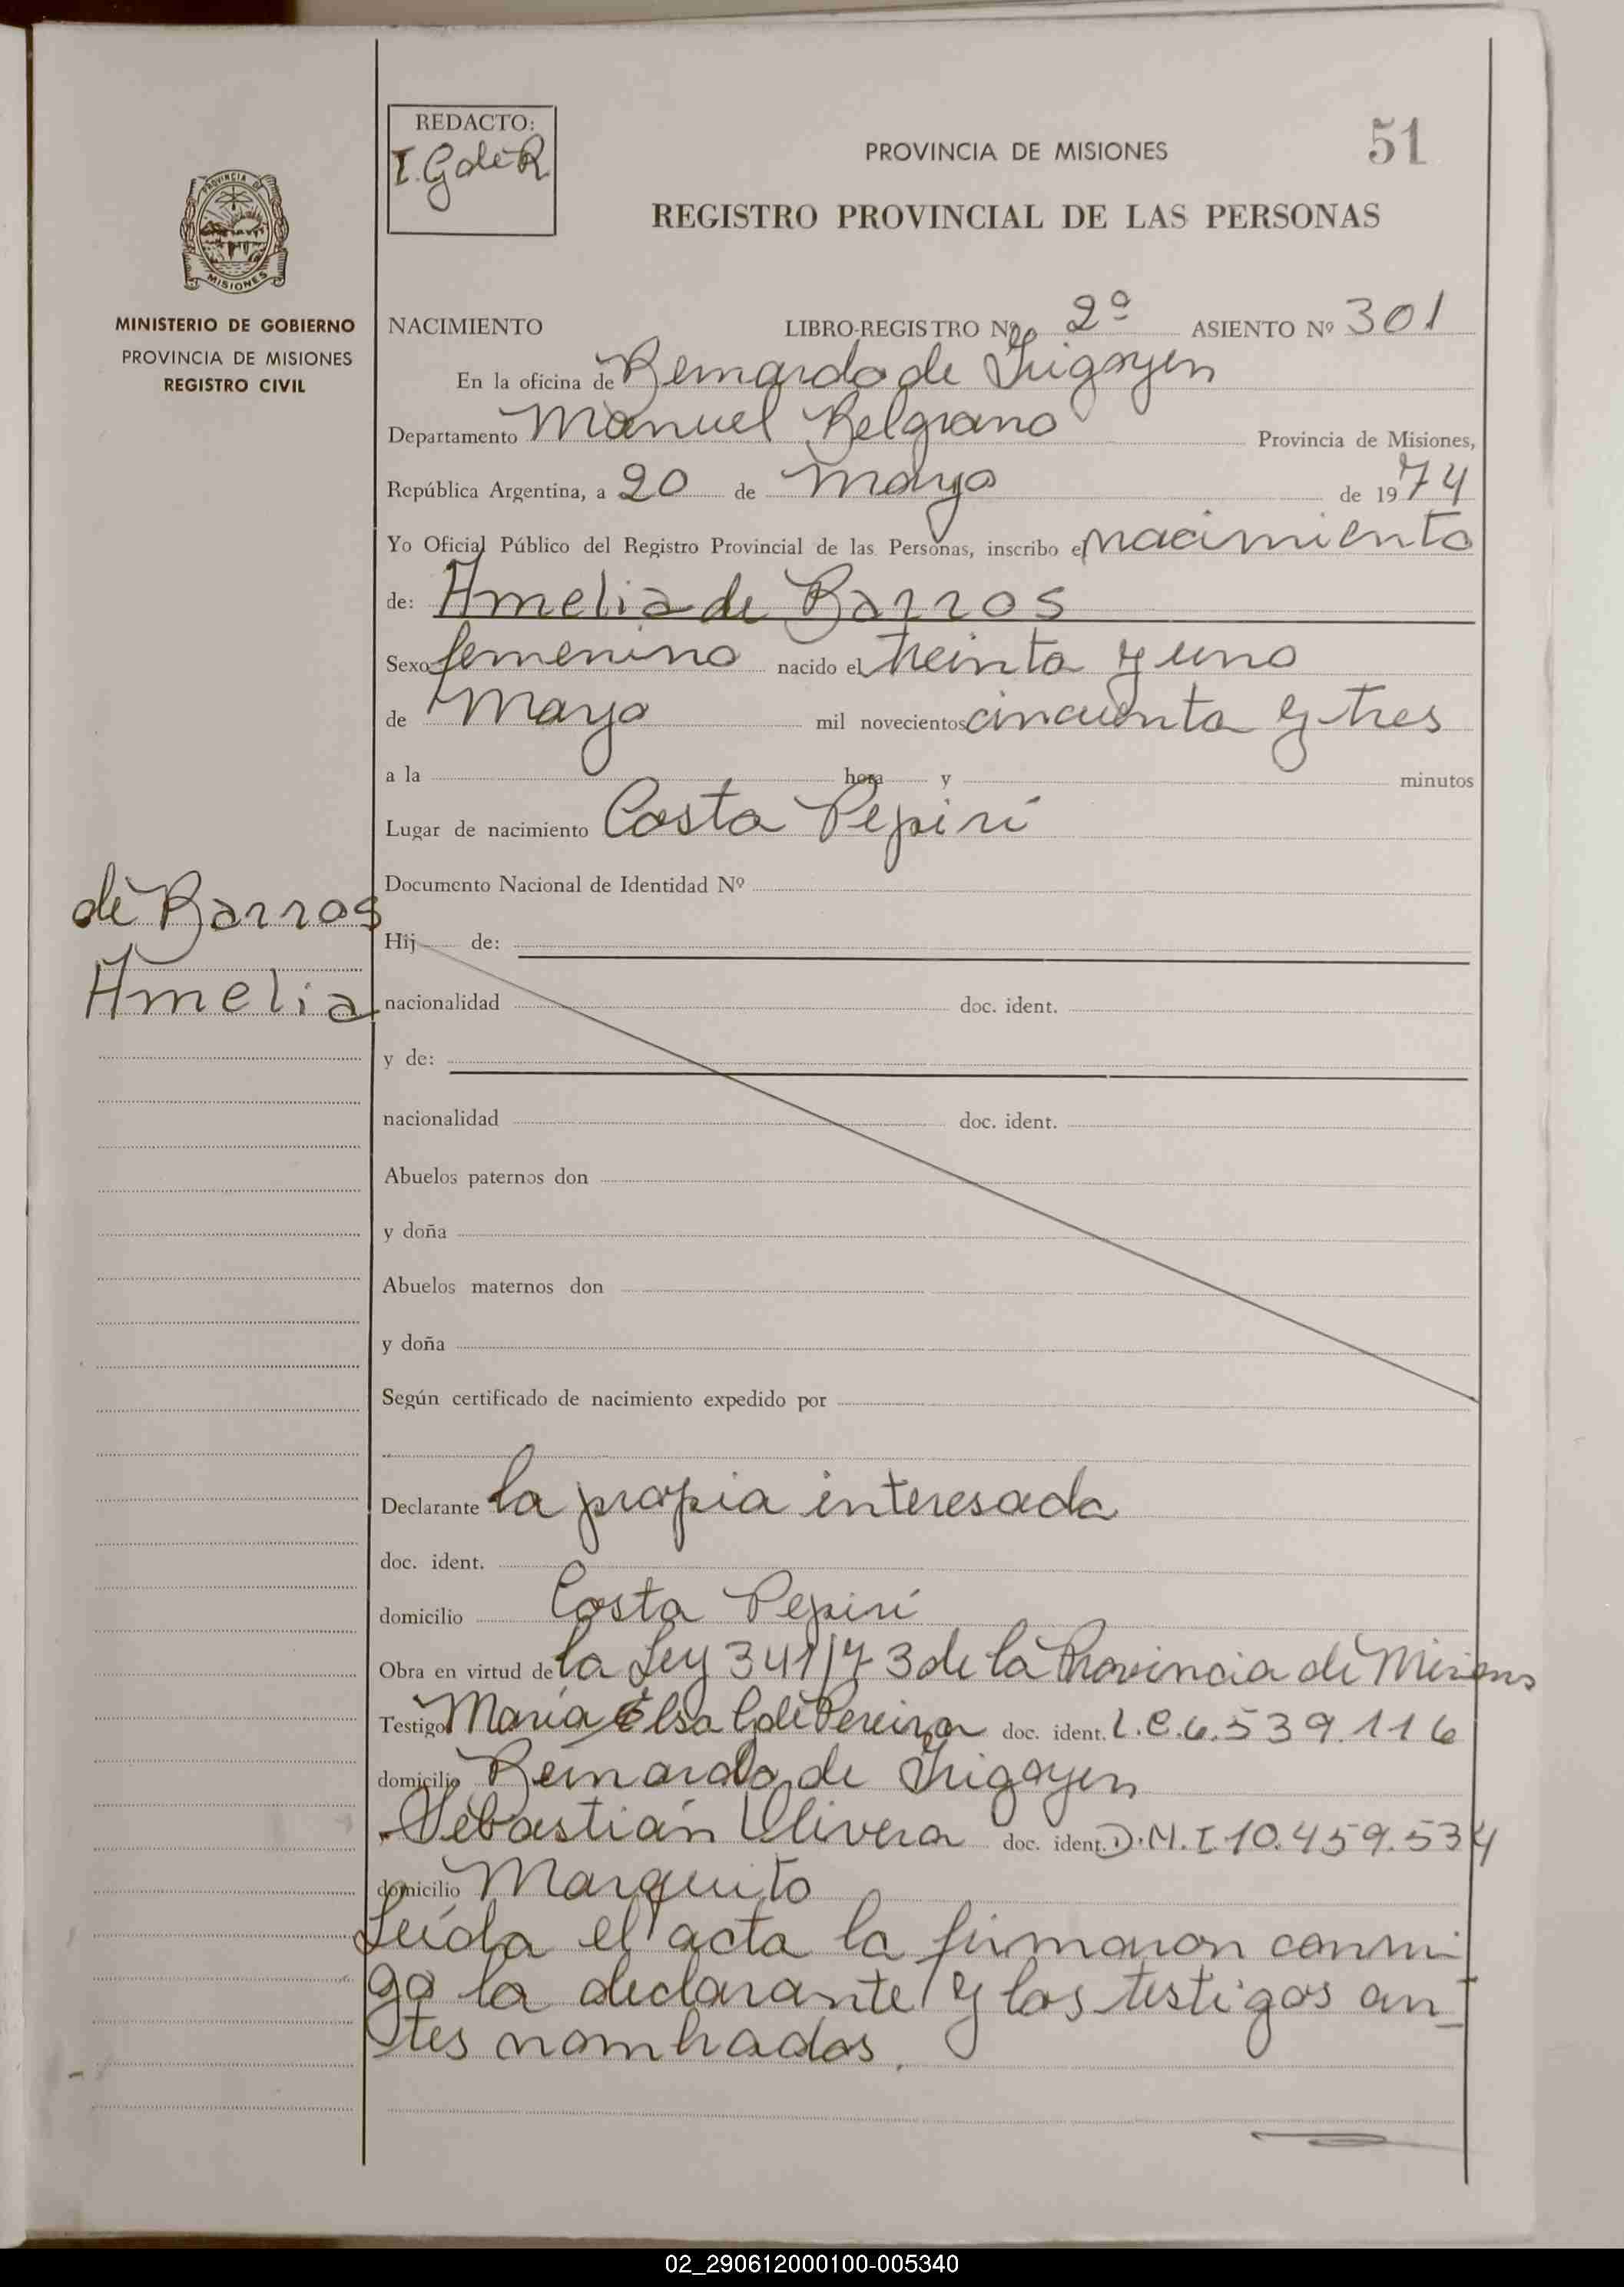 REDACTO:
I. G de R
PROVINCIA DE MISIONES
51
REGISTRO PROVINCIAL DE LAS PERSONAS
PROVINCIA DE
MISIONES
MINISTERIO DE GOBIERNO
PROVINCIA DE MISIONES
REGISTRO CIVIL
NACIMIENTO LIBRO-REGISTRO Nº 2º ASIENTO Nº 301
En la oficina de Bernardo de Irigoyen
Departamento Manuel Belgrano Provincia de Misiones,
República Argentina, a 20 de Mayo de 1974
Yo Oficial Público del Registro Provincial de las Personas, inscribo el nacimiento
de: Amelia de Barros
Sexo femenino nacido el treinta y uno
de Mayo mil novecientos cincuenta y tres
a la hora y minutos
Lugar de nacimiento Costa Pepirí
Documento Nacional de Identidad Nº
de Barros
Amelia
Hij de:
nacionalidad doc. ident.
y de:
nacionalidad doc. ident.
Abuelos paternos don
y doña
Abuelos maternos don
y doña
Según certificado de nacimiento expedido por
Declarante la propia interesada
doc. ident.
domicilio Costa Pepirí
Obra en virtud de la Ley 341/73 de la Provincia de Misiones
Testigos María Elsa G de Pereira doc. ident. L.C. 6.539.116
domicilio Bernardo de Irigoyen
Sebastián Olivera doc. ident. D.N.I. 10.459.534
domicilio Marquito
Leída el acta la firmaron conmi-
go la declarante y los testigos an-
tes nombrados.
02_290612000100-005340